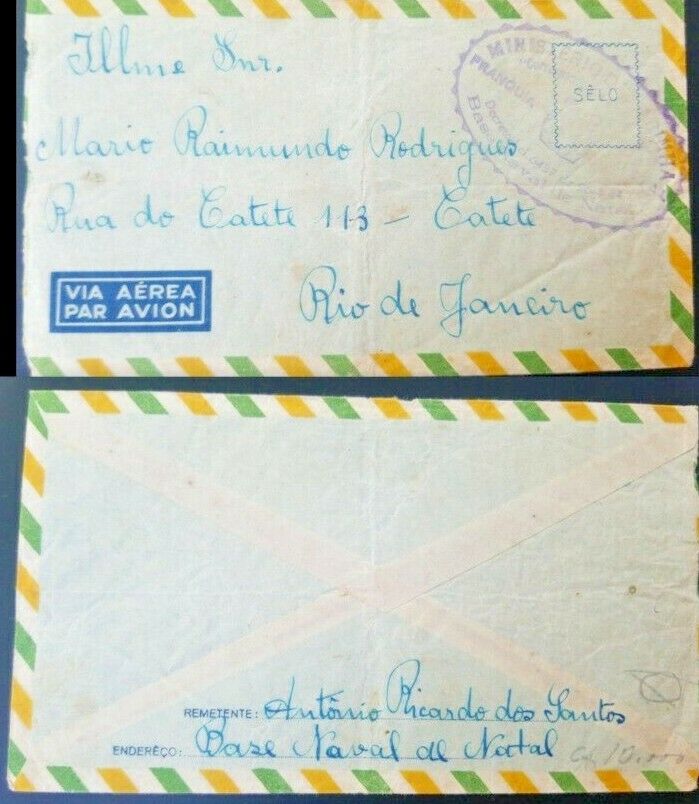 Illmo Snr.
MINISTÉRIO
FRANQUIA
SÊLO
Base Naval de Natal
Mario Raimundo Rodrigues
Rua do Catete 113 - Catete
VIA AÉREA
PAR AVION
Rio de Janeiro
REMETENTE: Antônio Ricardo dos Santos
ENDERÊÇO: Base Naval de Natal
10.000